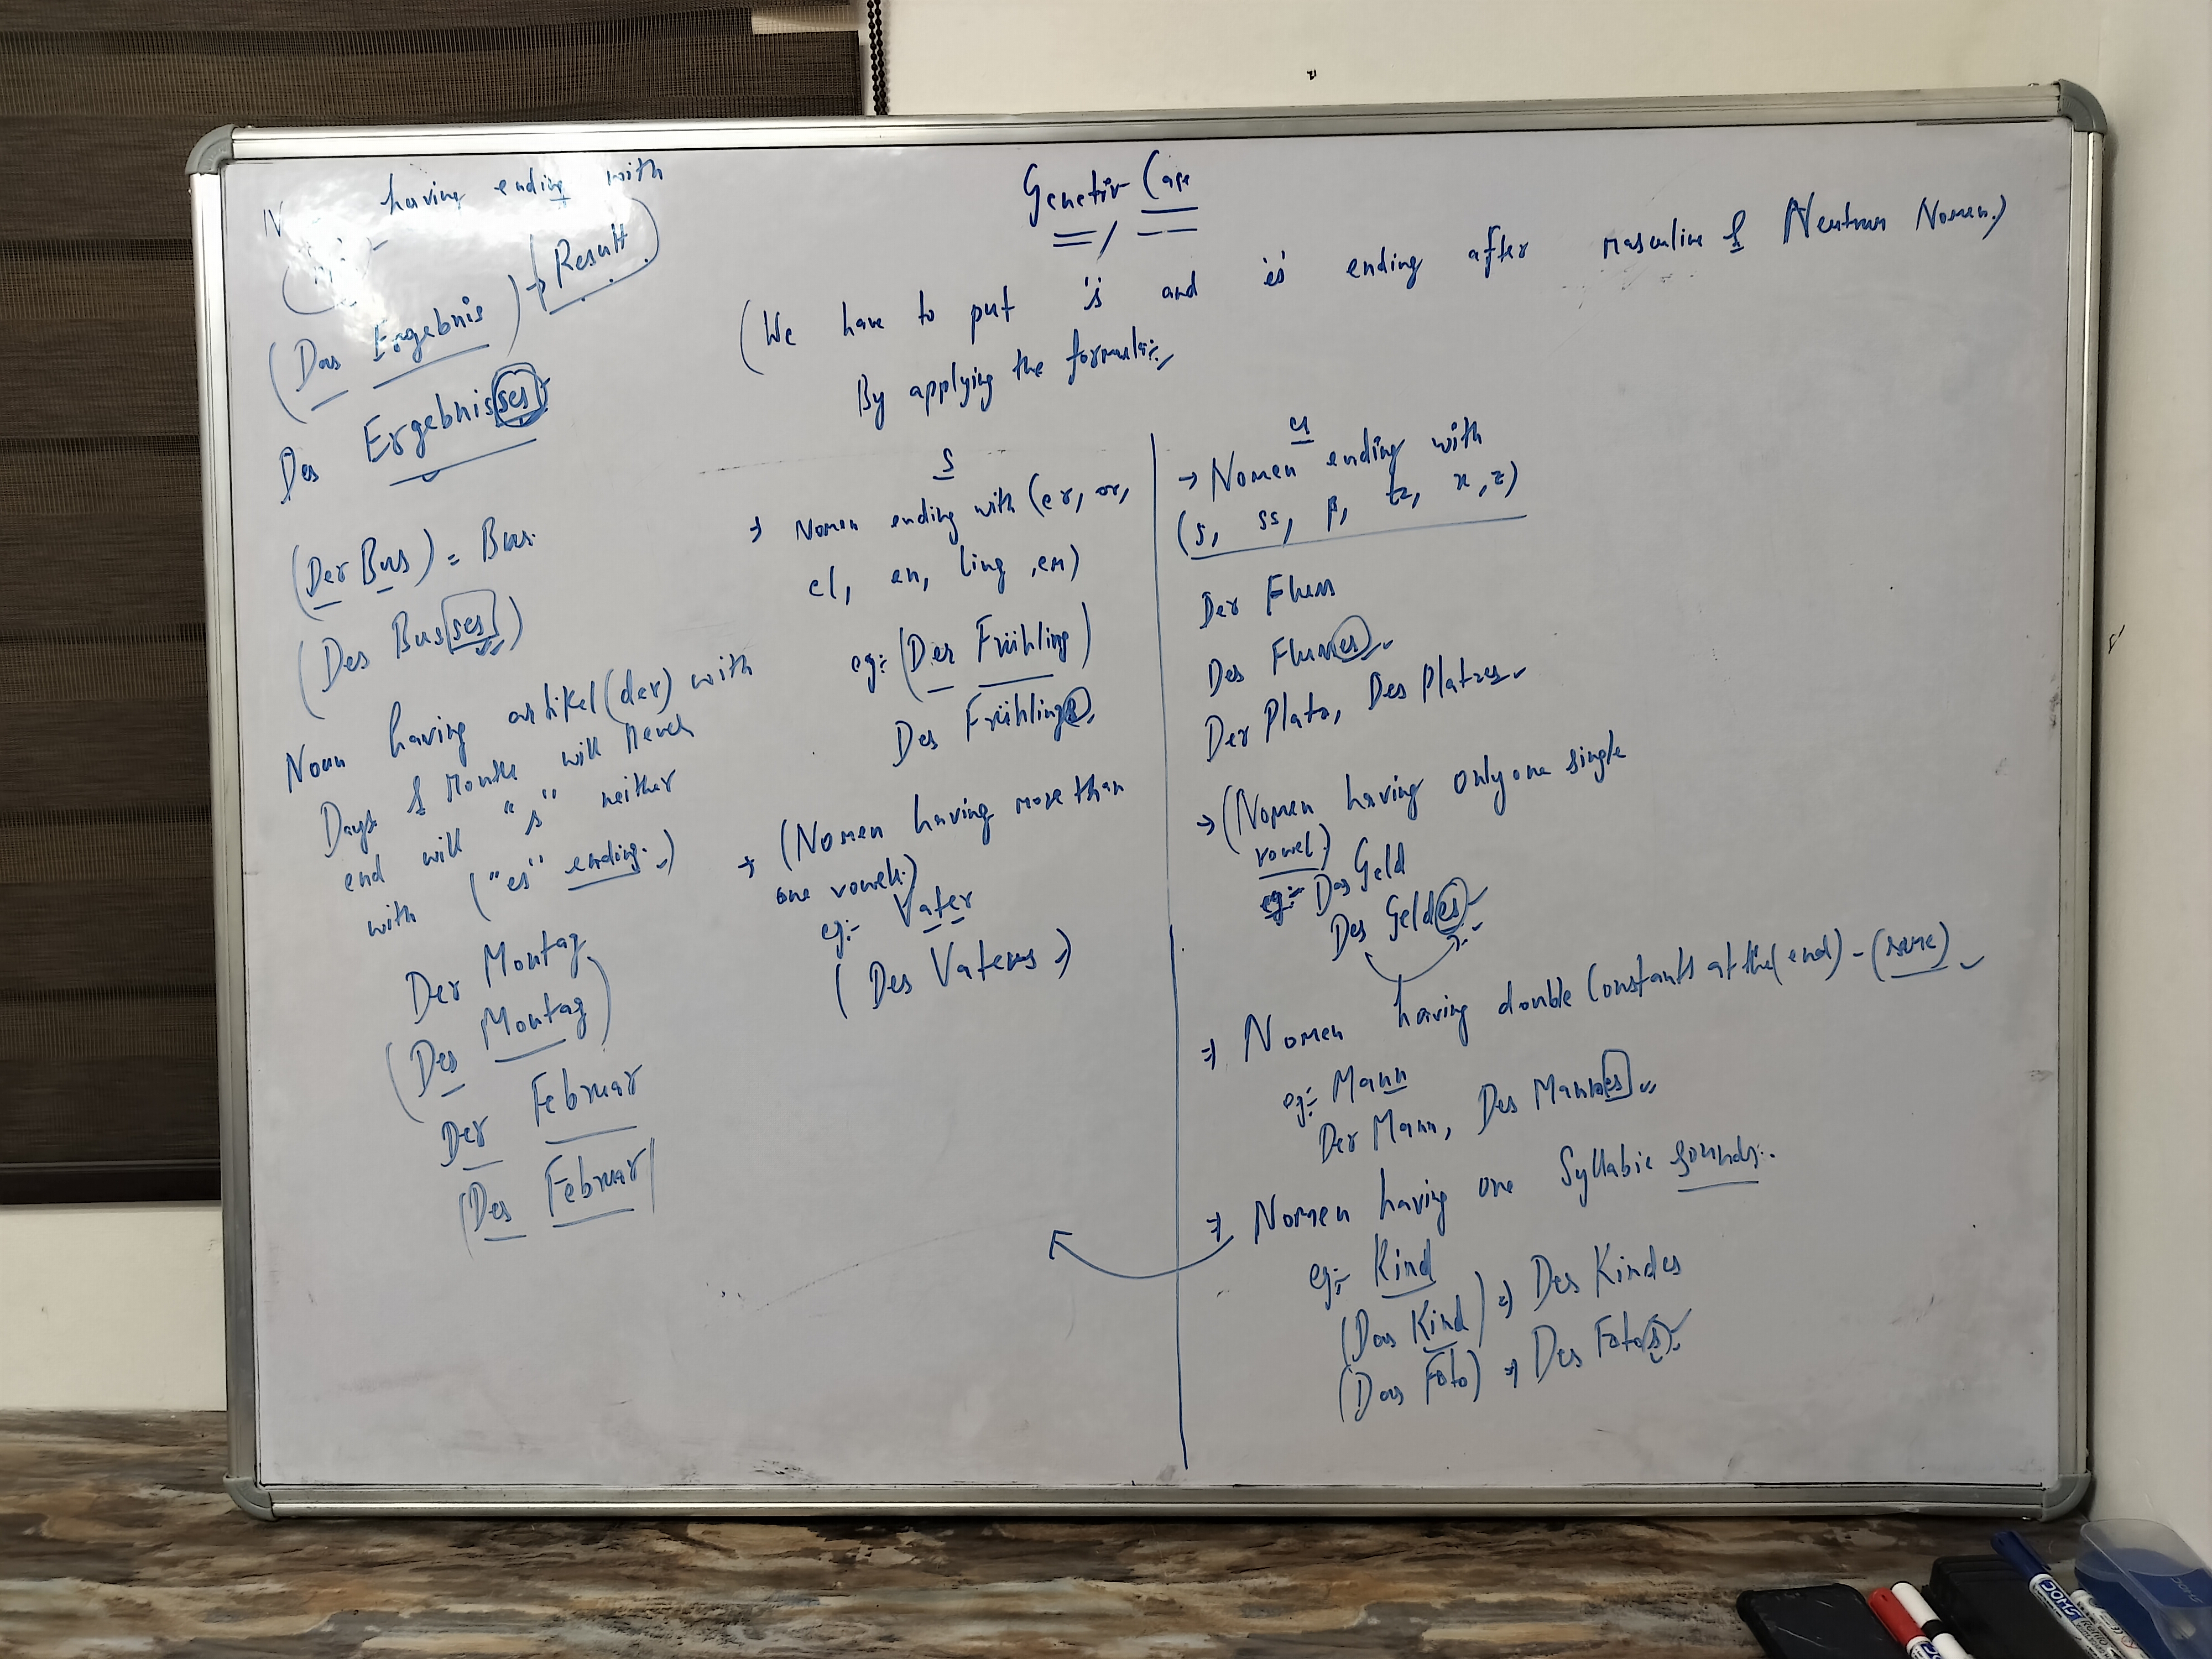 Genetiv Case
(We have to put 's' and 'es' ending after masculine & Neutrum Nomen.)
By applying the formula:-
having ending with
(Das Ergebnis) → (Result)
Des Ergebnisses
(Der Bus) = Bus.
(Des Busses)
Noun having artikel (der) with
Days & Months will Never
end will "s" neither
with ("es" ending.)
Der Montag
(Des Montag)
Der Februar
(Des Februar)
s
→ Nomen ending with (er, or,
el, en, ling, em)
eg:- (Der Frühling)
Des Frühlings
→ (Nomen having more than
one vowels.)
eg:- Vater
(Des Vaters →)
es
→ Nomen ending with
(s, ss, ß, tz, x, z)
Der Fluss
Des Flusses
Der Platz, Des Platzes
→ (Nomen having only one single
vowel.)
eg:- Das Geld
Des Geldes
⇒ Nomen having double Constants at the (end) - (same)
eg:- Mann
Der Mann, Des Mannes
⇒ Nomen having one Syllabic sounds:-
eg:- Kind
(Das Kind) ⇒ Des Kindes
(Das Foto) ⇒ Des Fotos